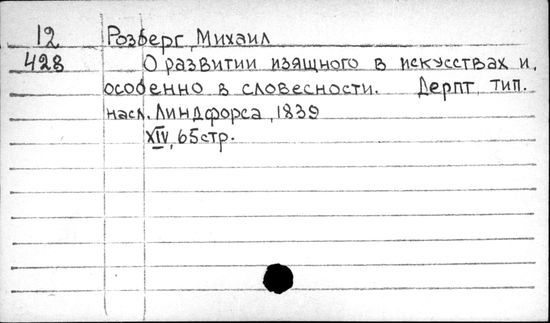 12 Розберг, Михаил
428 О развитии изящного в искусствах и,
особенно в словесности. Дерпт, тип.
насл. Линдфорса, 1839
XIV, 65 стр.